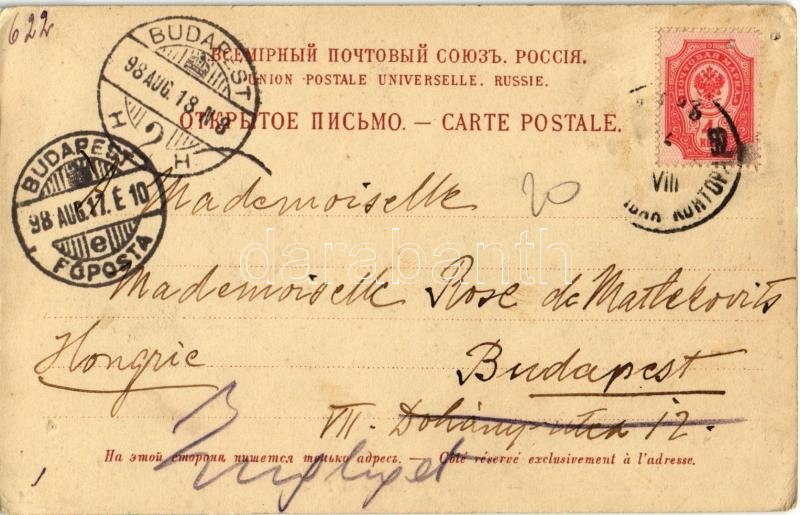 622
ВСЕМІРНЫЙ ПОЧТОВЫЙ СОЮЗЪ. РОССІЯ.
UNION POSTALE UNIVERSELLE. RUSSIE.
ОТКРЫТОЕ ПИСЬМО. — CARTE POSTALE.
BUDAPEST
98 AUG. 18. M 8
H 2 H
BUDAPEST
98 AUG. 17. É 10
e
FŐPOSTA
ПОЧТОВАЯ МАРКА
VIII
КОНТОРА
Mademoiselle
20
darabanth
Mademoiselle Rose de Matlekovits
Hongrie
Budapest
VII. Dohány-utca 12.
Zugliget
На этой сторонѣ пишется только адресъ. — Côté réservé exclusivement à l'adresse.